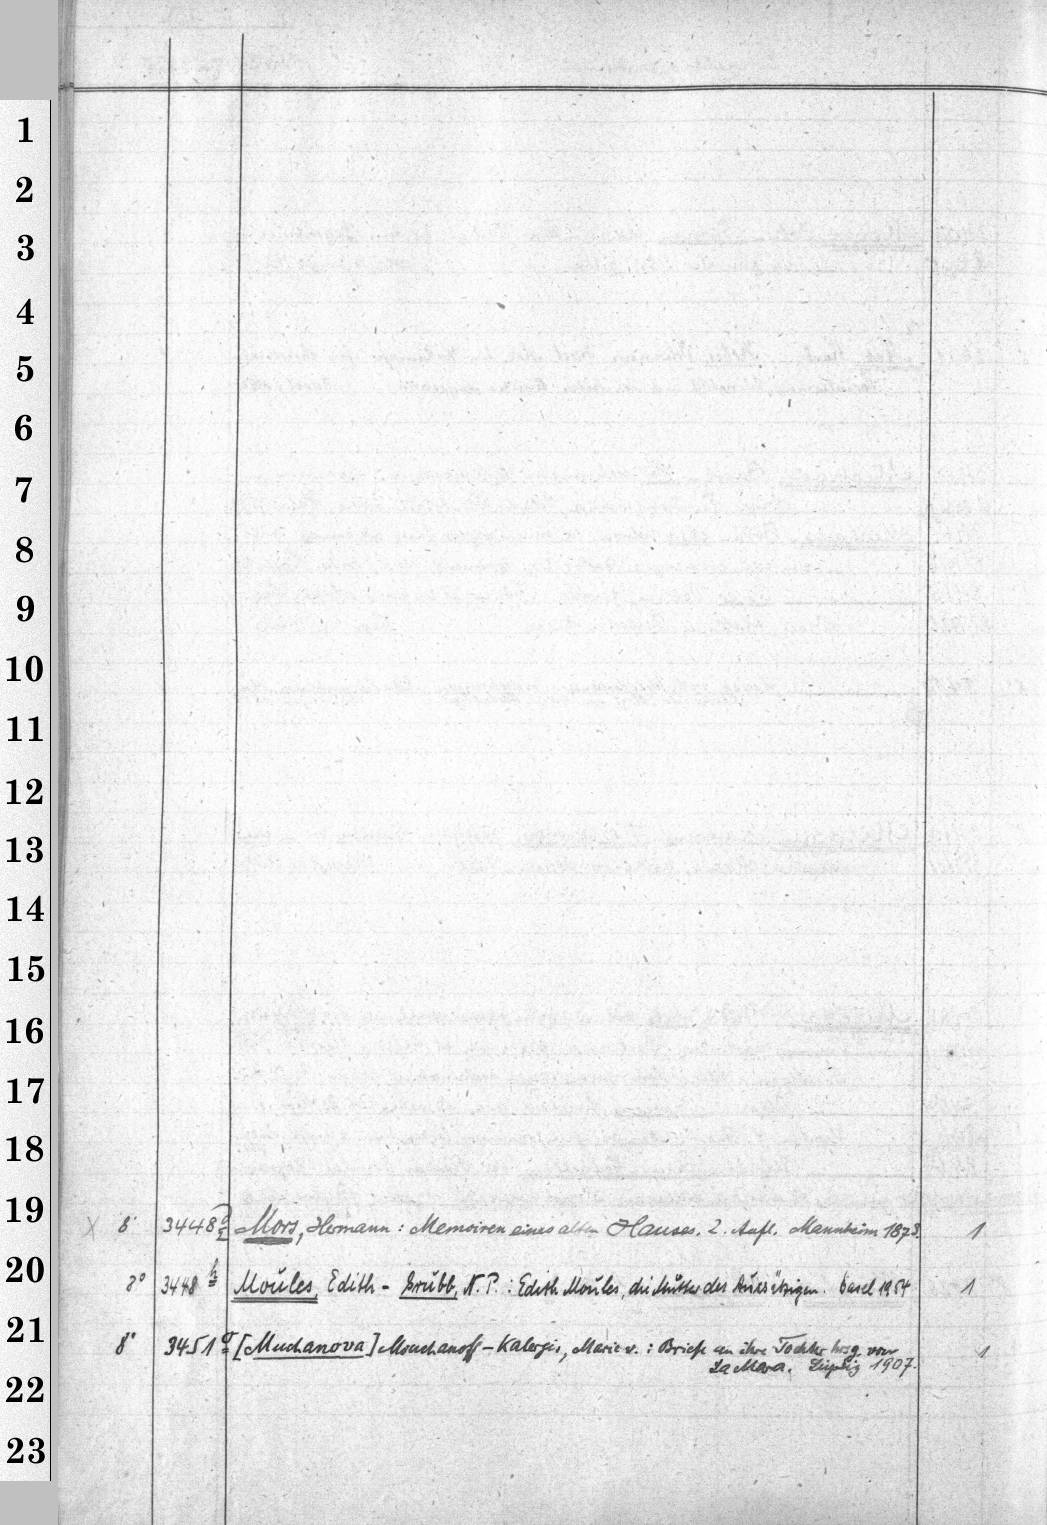 1
2
3
4
5
6
7
8
9
10
11
12
13
14
15
16
17
18
19
X 8° 3448 g Mors, Hermann : Memoiren eines alten Hauses. 2. Aufl. Mannheim 1873. 1
20
8° 3448 h Moules, Edith - Grubb, N. P. : Edith Moules, die Mutter des Aussätzigen. Basel 1954 1
21
8° 3451 g [Muchanova] Mouchanoff - Kalergis, Marie v. : Briefe an ihre Tochter hrsg. von 1
La Mara. Leipzig 1907.
22
23